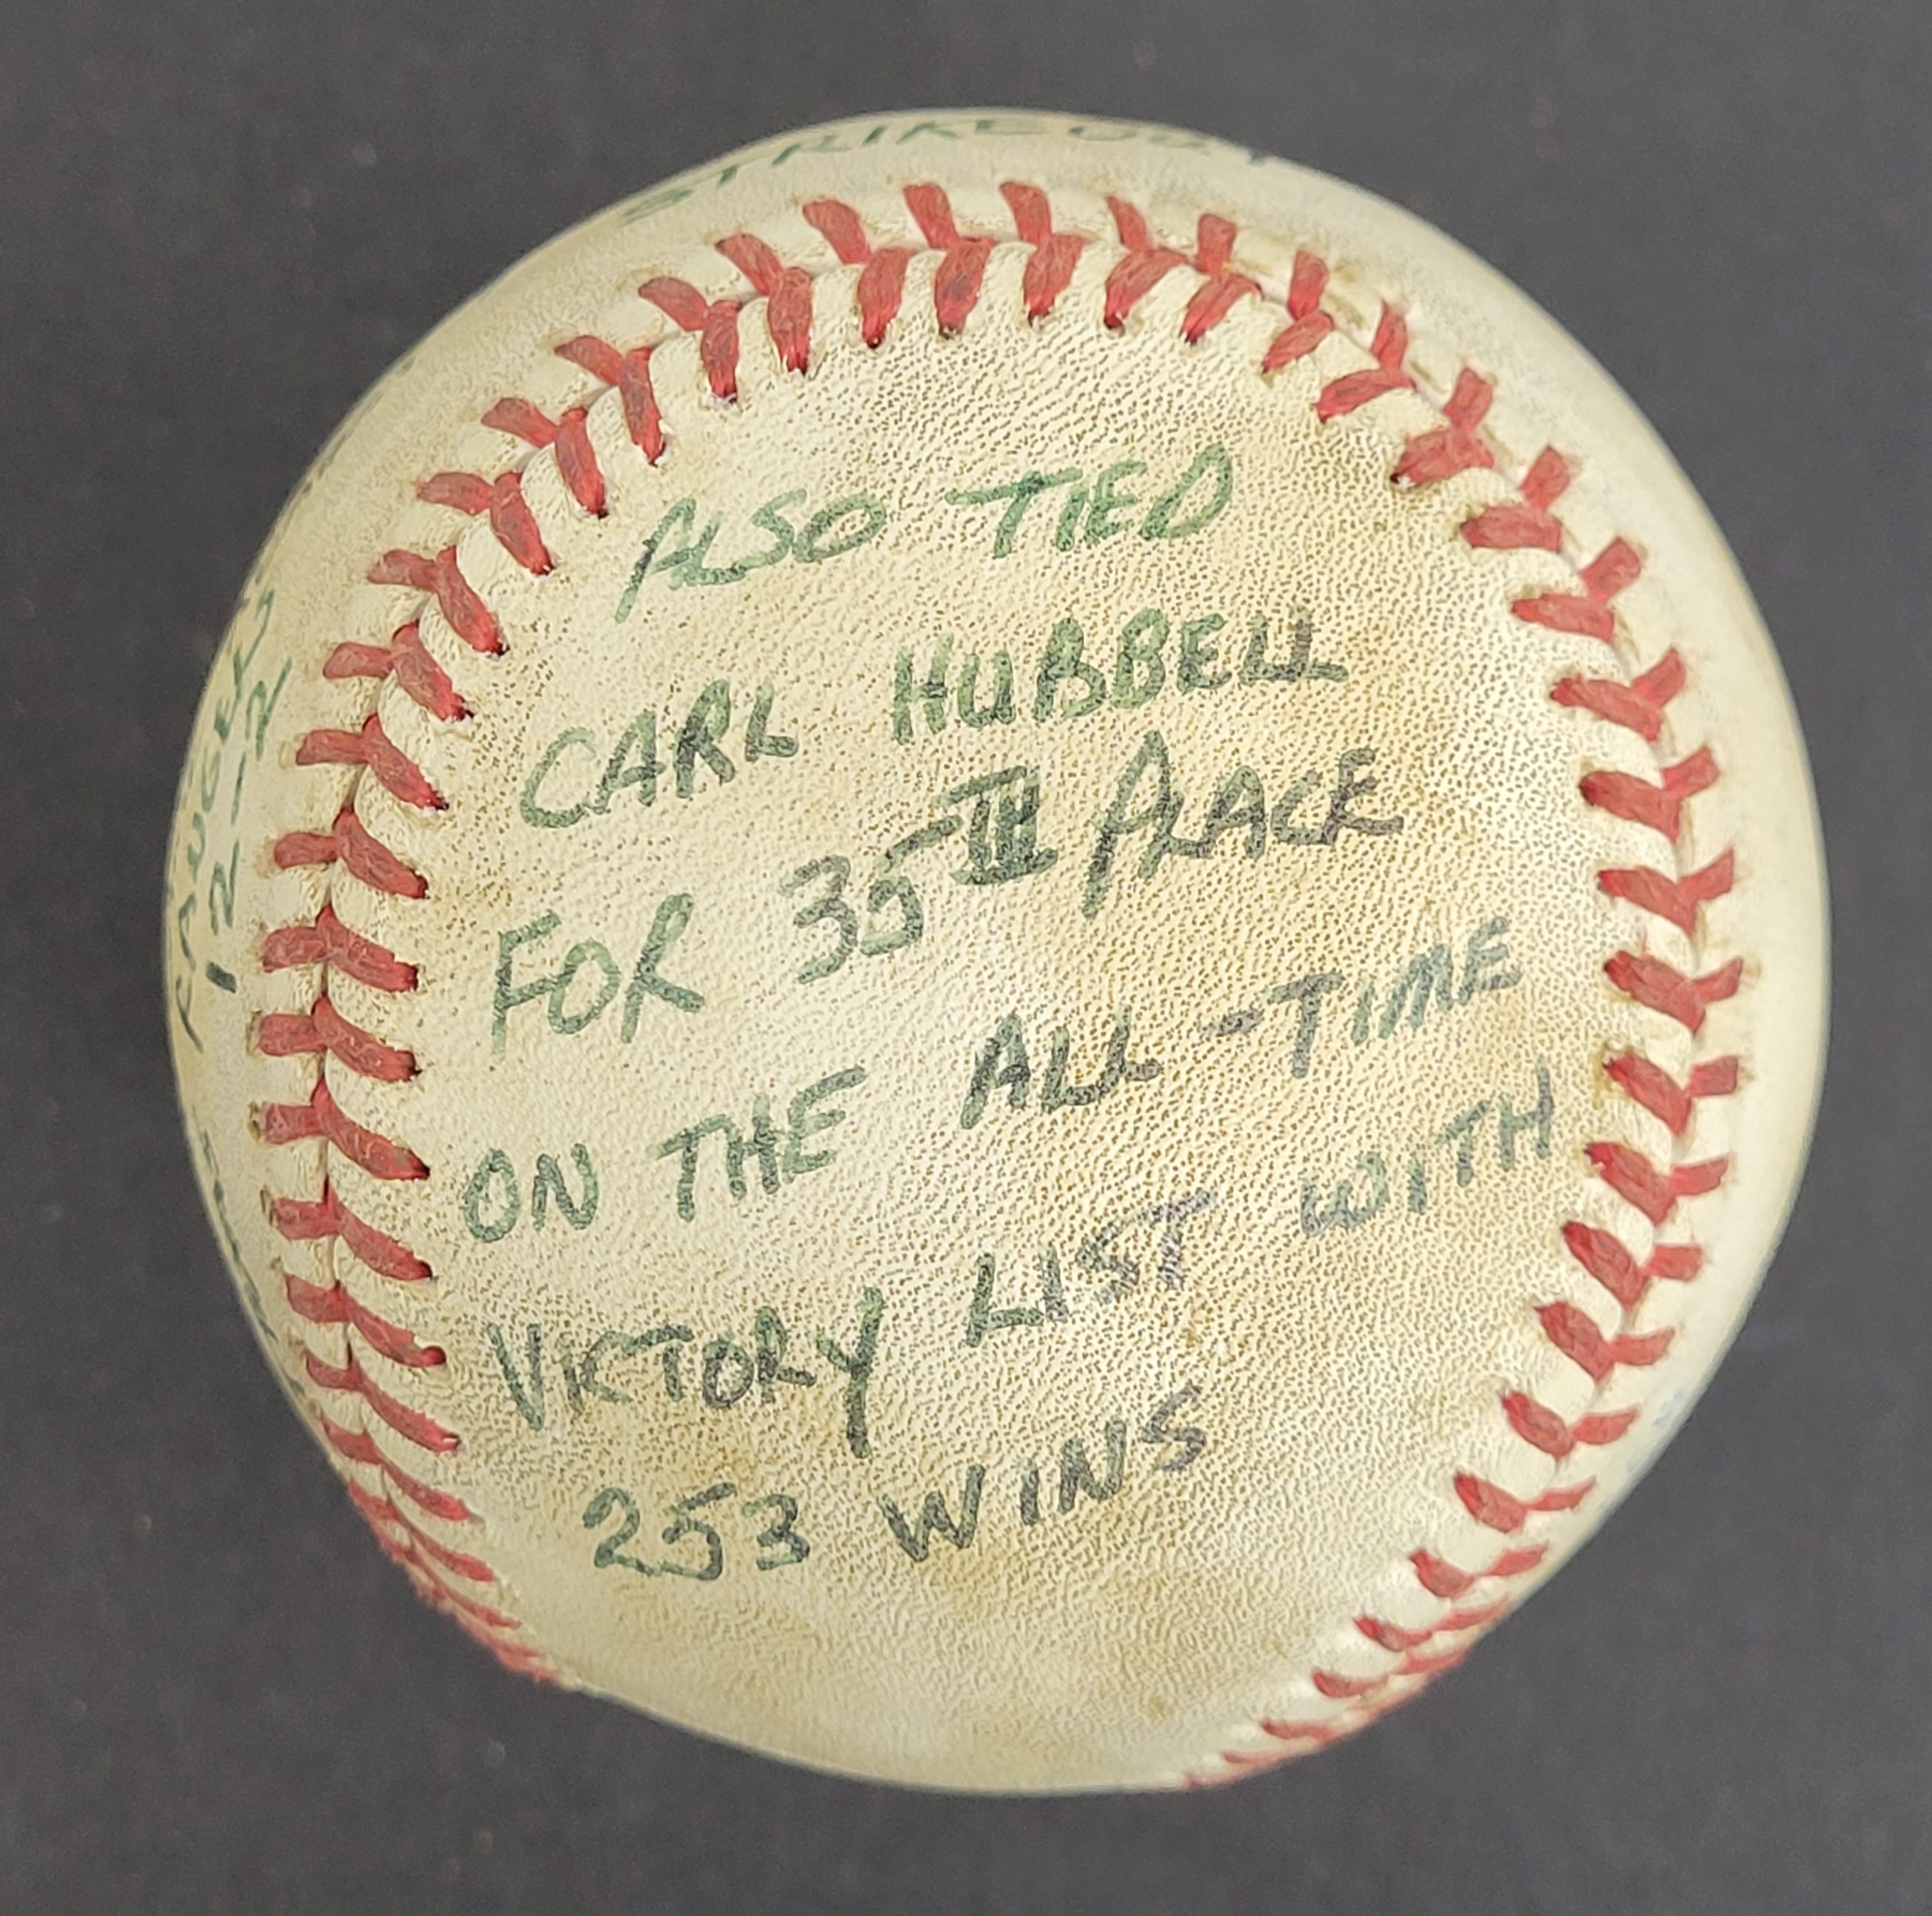 STRIKEOUT
ALSO TIED
CARL HUBBELL
FOR 35TH PLACE
ON THE ALL-TIME
VICTORY LIST WITH
253 WINS
RANGERS
12-2